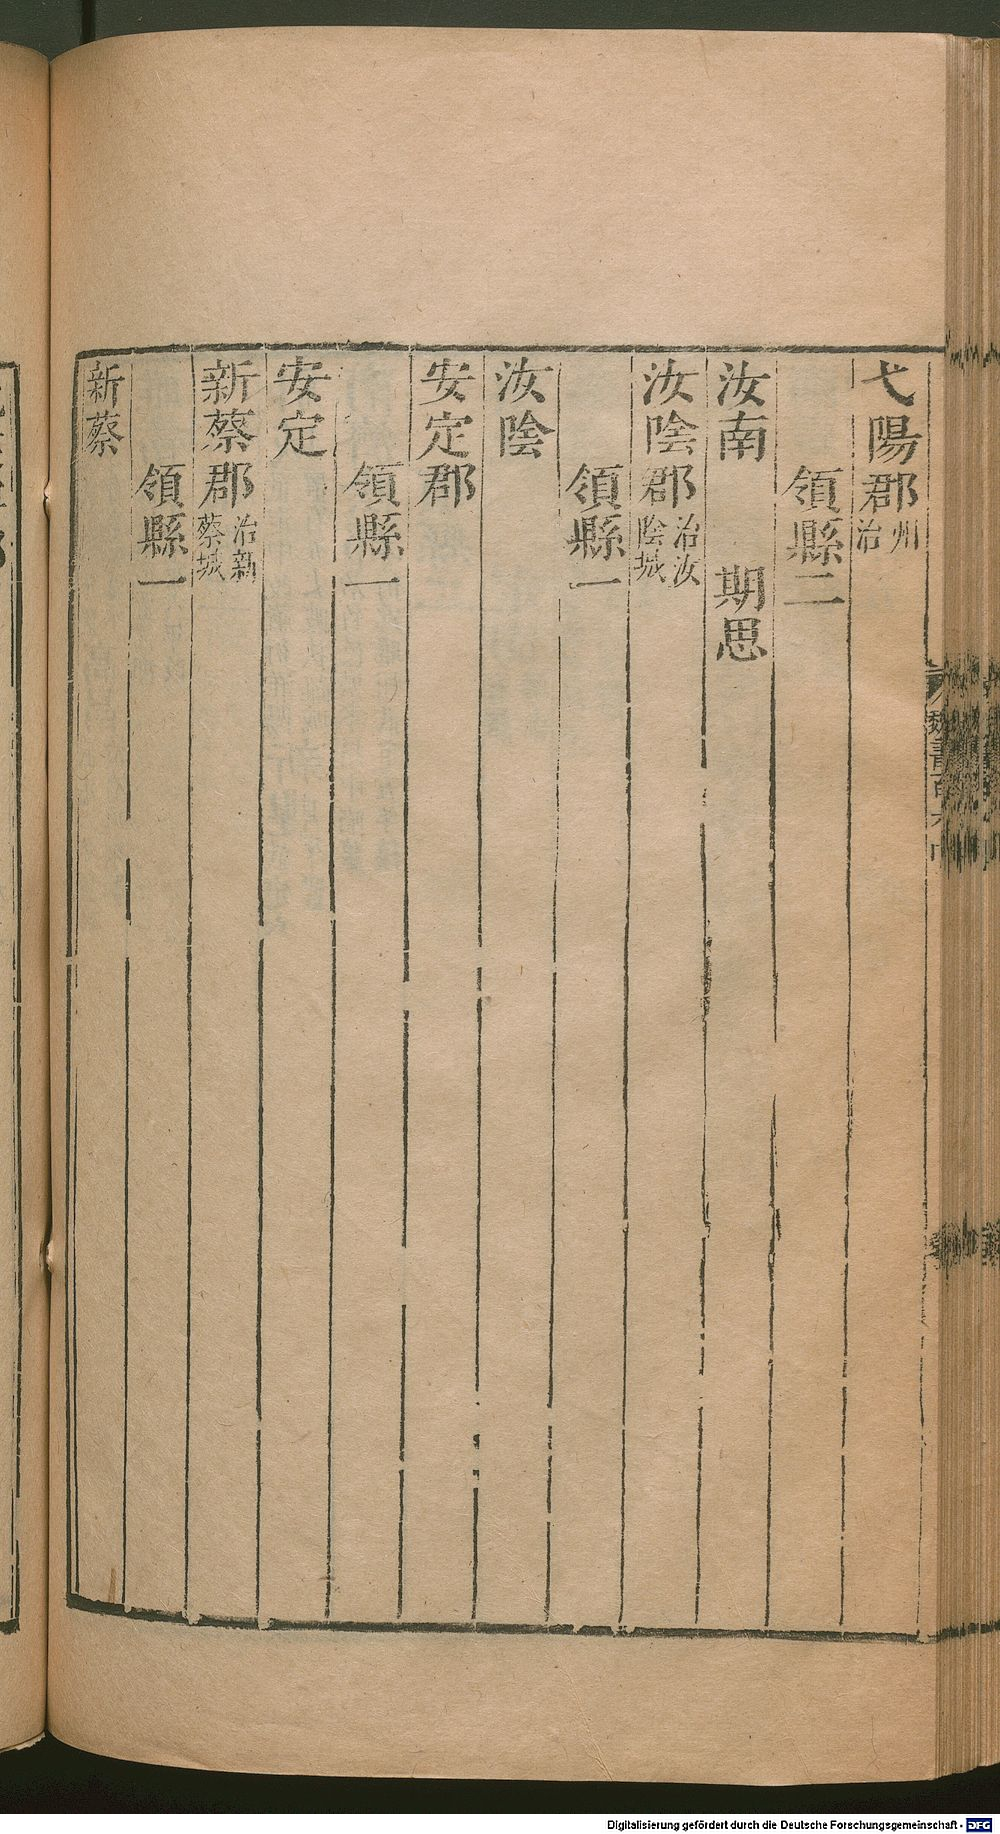 弋陽郡州治
領縣二
汝南 期思
汝陰郡治汝陰城
領縣一
汝陰
安定郡
領縣一
安定
新蔡郡治新蔡城
領縣一
新蔡
魏書百六中
Digitalisierung gefördert durch die Deutsche Forschungsgemeinschaft - DFG